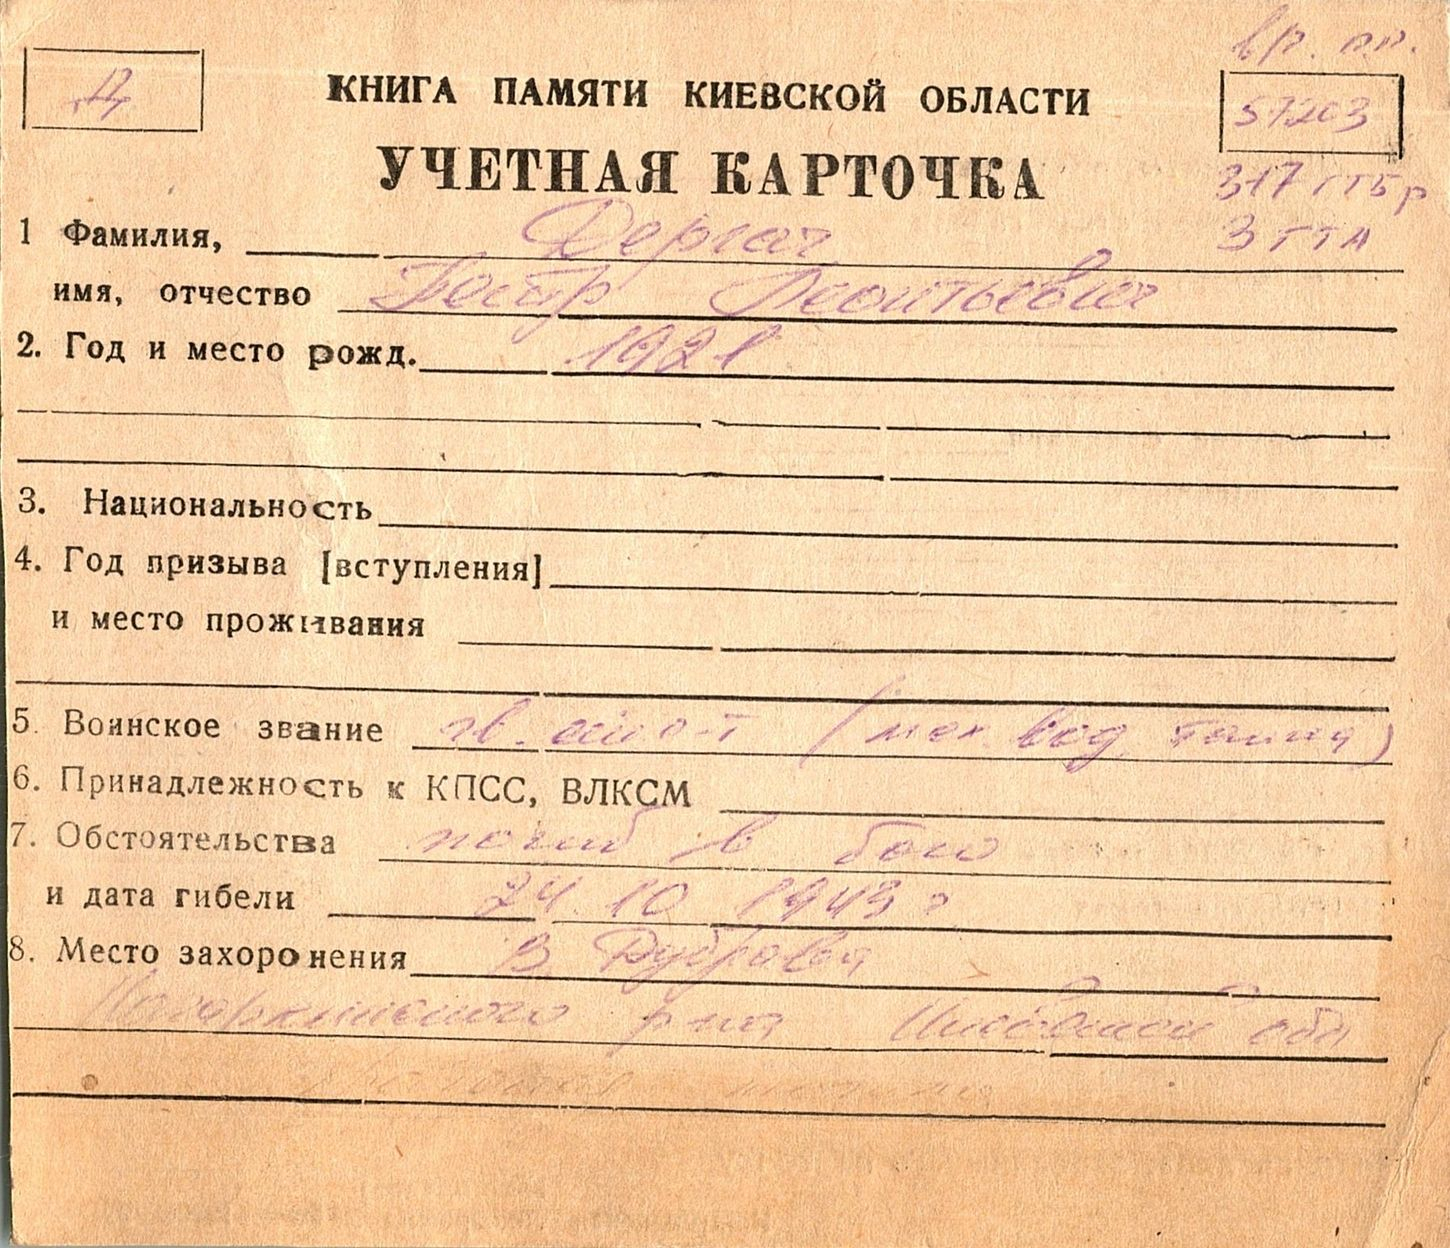 вр. пп.
Д
КНИГА ПАМЯТИ КИЕВСКОЙ ОБЛАСТИ
57203
УЧЕТНАЯ КАРТОЧКА
317 гтбр
3 гта
1 Фамилия, Дергач
имя, отчество Петр Леонтьевич
2. Год и место рожд. 1921
3. Национальность
4. Год призыва [вступления]
и место проживания
5. Воинское звание гв. (мех. вод. танка)
6. Принадлежность к КПСС, ВЛКСМ
7. Обстоятельства погиб в бою
и дата гибели 24.10.1943 г
8. Место захоронения В. Дубровка
р-на Киевской обл
могила